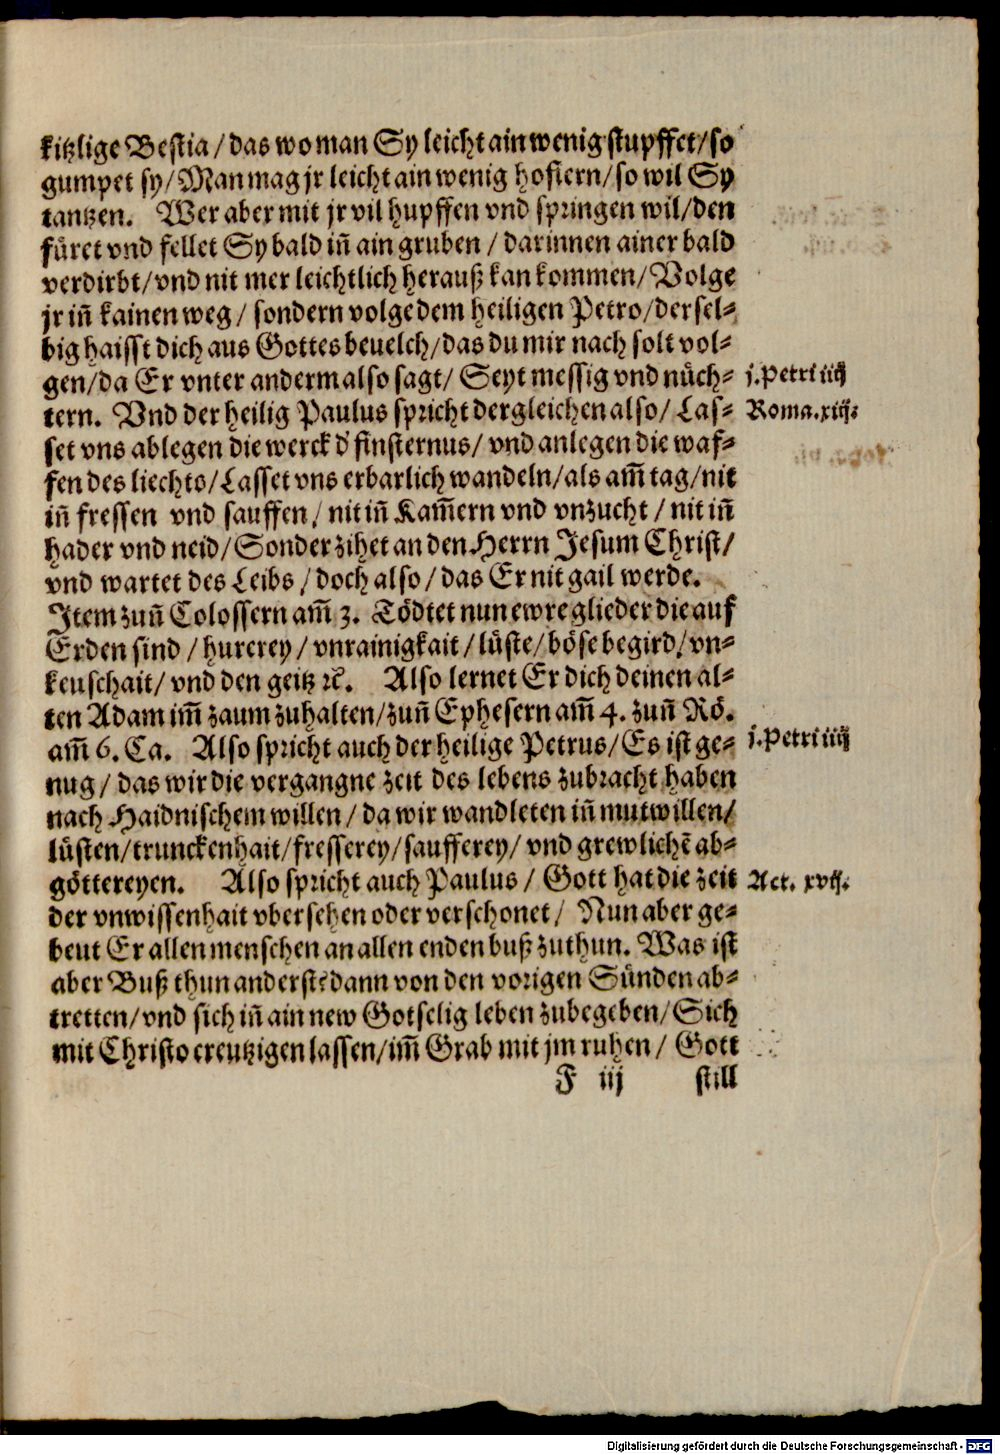 kitzlige Bestia / das wo man Sy leicht ain wenig stupffet / so
gumpet sy / Man mag jr leicht ain wenig hofiern / so wil Sy
tantzen. Wer aber mit jr vil hupffen vnd springen wil / den
füret vnd fellet Sy bald iñ ain gruben / darinnen ainer bald
verdirbt / vnd nit mer leichtlich herauß kan kommen / Volge
jr iñ kainen weg / sondern volge dem heiligen Petro / der sel-
big haisst dich aus Gottes beuelch / das du mir nach solt vol-
gen / da Er vnter anderm also sagt / Seyt messig vnd nüch- j. Petri iiij
tern. Vnd der heilig Paulus spricht dergleichen also / Las- Roma. xiij.
set vns ablegen die werck d' finsternus / vnd anlegen die waf-
fen des liechts / Lasset vns erbarlich wandeln / als am̃ tag / nit
iñ fressen vnd sauffen / nit iñ Kam̃ern vnd vnzucht / nit iñ
hader vnd neid / Sonder zihet an den Herrn Jesum Christ /
vnd wartet des Leibs / doch also / das Er nit gail werde.
Item zuñ Colossern am̃ 3. Tödtet nun ewre glieder die auf
Erden sind / hurerey / vnrainigkait / lüste / böse begird / vn-
keuschait / vnd den geitz ꝛc. Also lernet Er dich deinen al-
ten Adam im̃ zaum zuhalten / zuñ Ephesern am̃ 4. zuñ Rö.
am̃ 6. Ca. Also spricht auch der heilige Petrus / Es ist ge- j. Petri iiij
nug / das wir die vergangne zeit des lebens zubracht haben
nach Haidnischem willen / da wir wandleten iñ mutwillen /
lüsten / trunckenhait / fresserey / saufferey / vnd grewlichē ab-
göttereyen. Also spricht auch Paulus / Gott hat die zeit Act. xvij.
der vnwissenhait vbersehen oder verschonet / Nun aber ge-
beut Er allen menschen an allen enden buß zuthun. Was ist
aber Buß thun anderst? dann von den vorigen Sünden ab-
tretten / vnd sich iñ ain new Gotselig leben zubegeben / Sich
mit Christo creutzigen lassen / im̃ Grab mit jm ruhen / Gott
F iij still
Digitalisierung gefördert durch die Deutsche Forschungsgemeinschaft - DFG